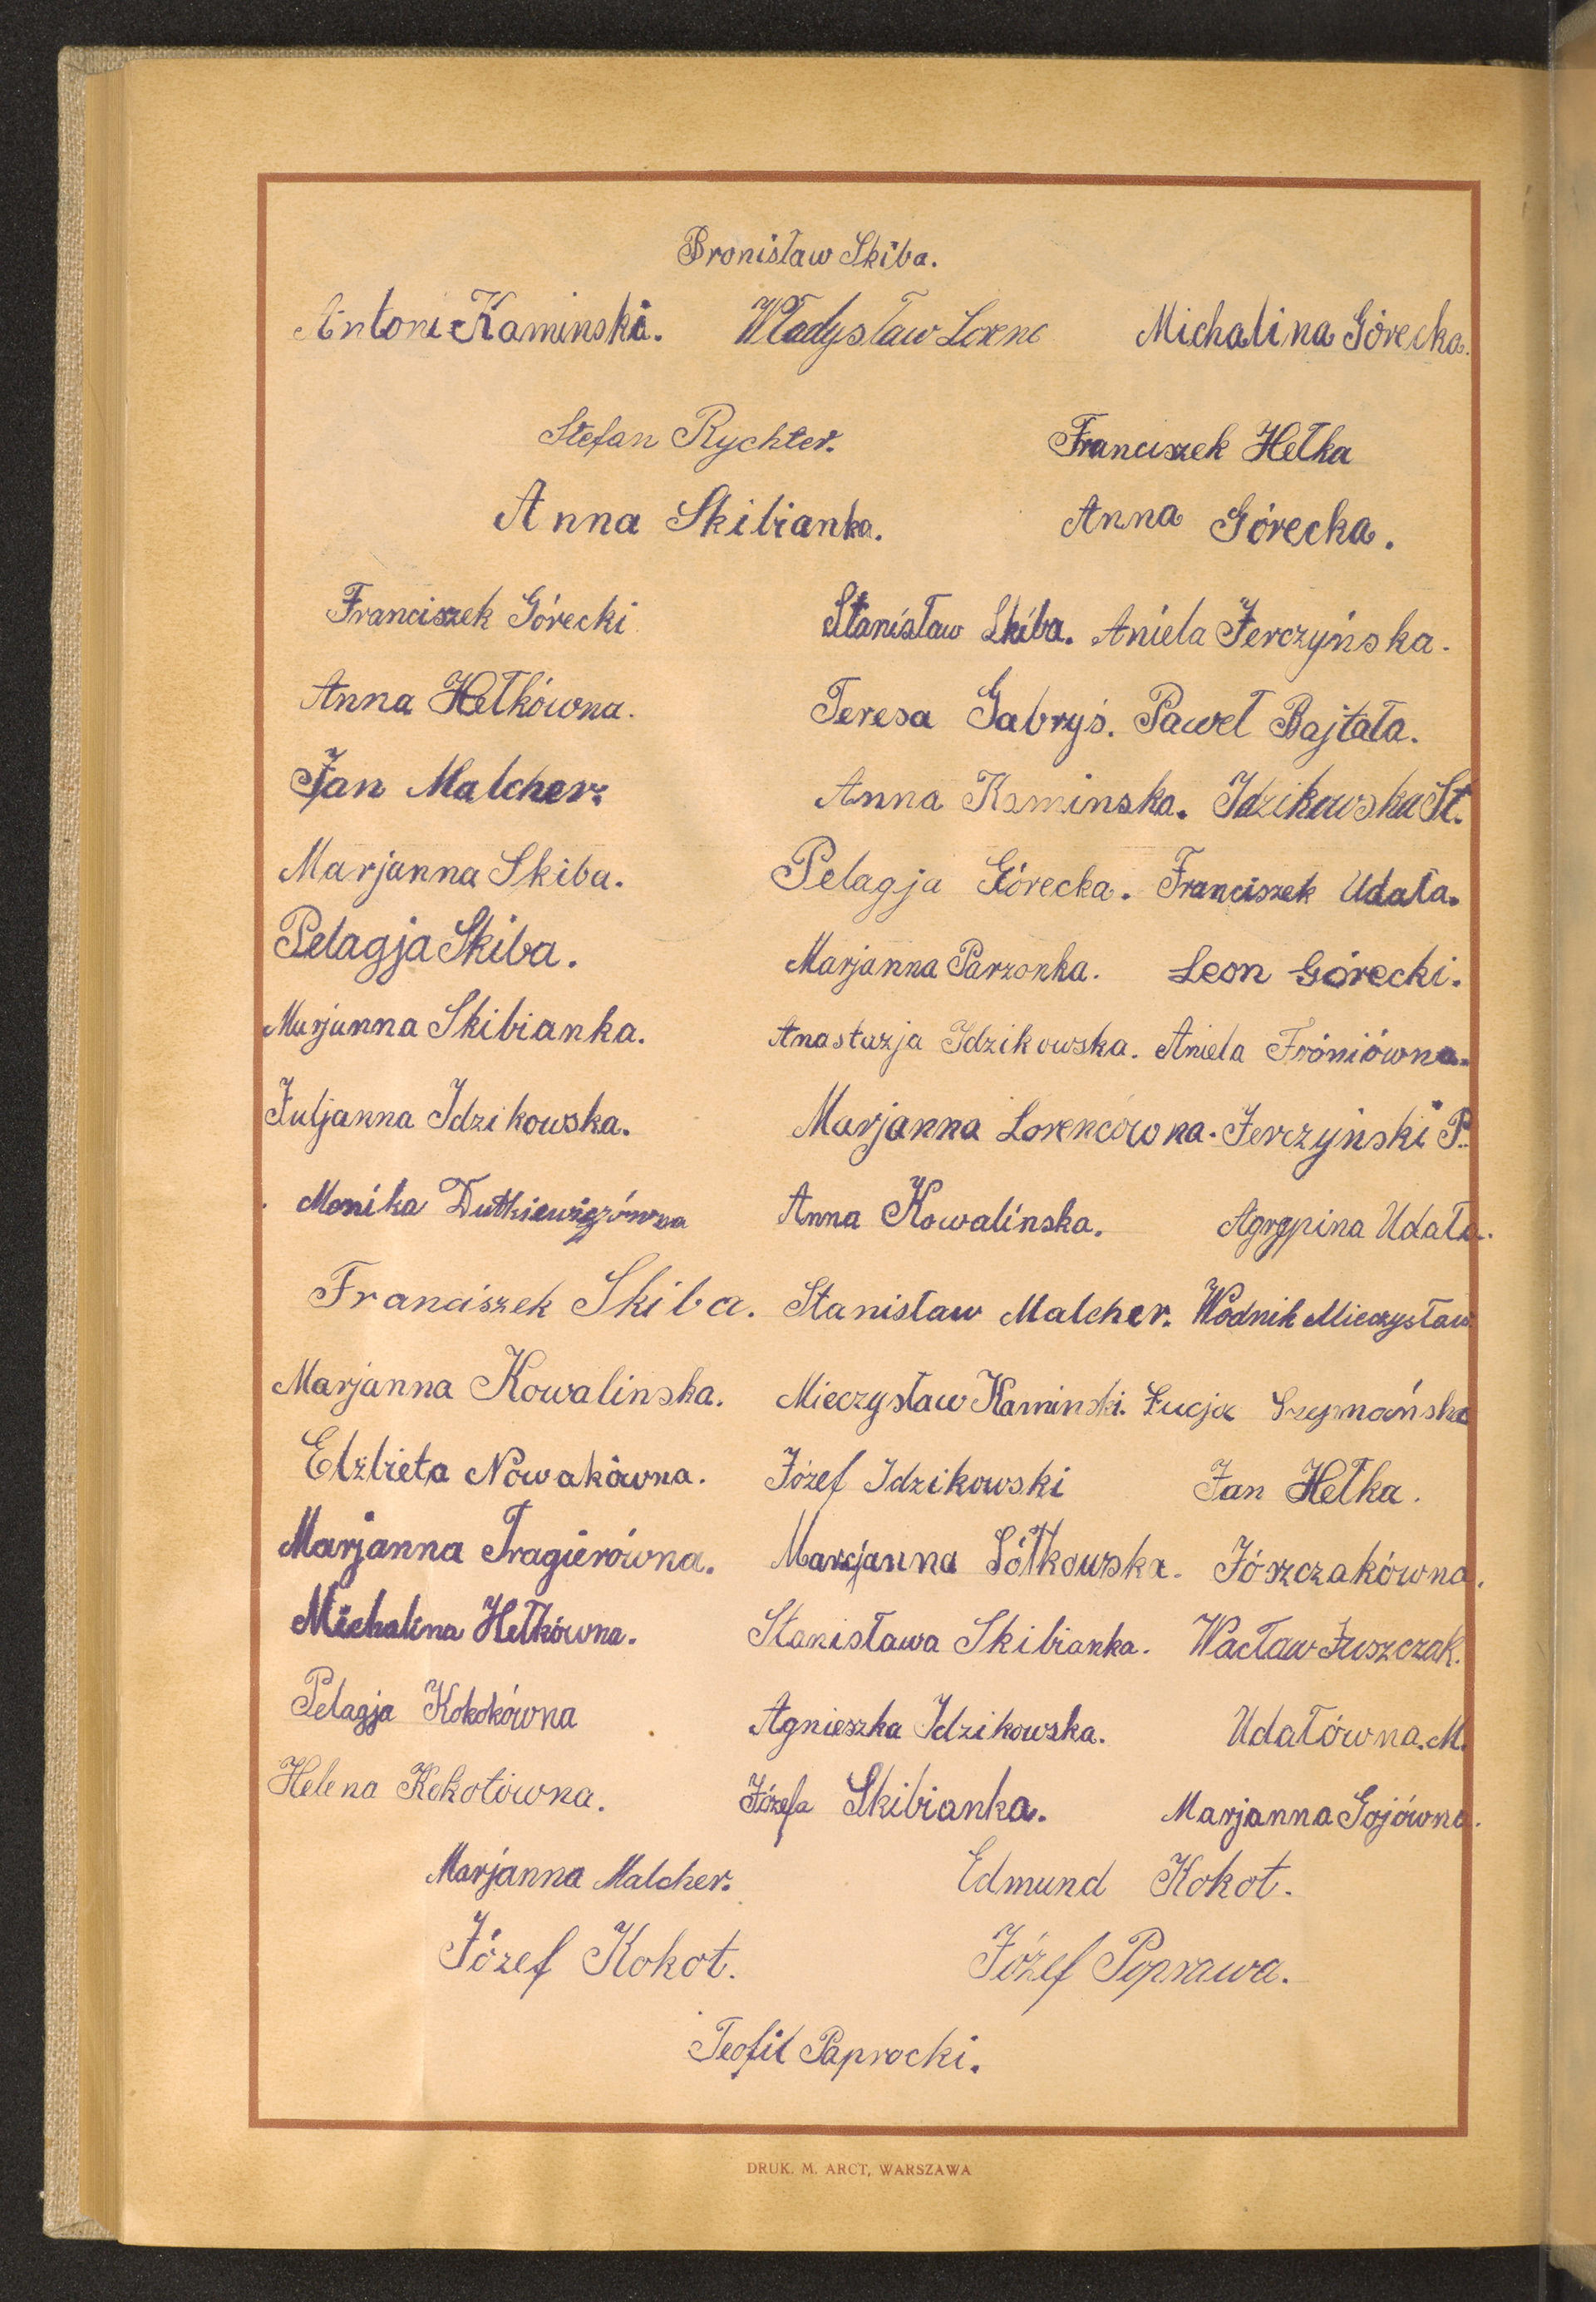 Bronisław Skiba.
Antoni Kaminski. Władysław Lorenc Michalina Górecka.
Stefan Rychter. Franciszek Hełka
Anna Skibianka. Anna Górecka.
Franciszek Górecki Stanisław Skiba. Aniela Jerczyńska.
Anna Hełkówna. Teresa Gabryś. Paweł Bajtała.
Jan Malcher. Anna Kaminska. Idzikowska St.
Marjanna Skiba. Pelagja Górecka. Franciszek Udała.
Pelagja Skiba. Marjanna Parzonka. Leon Górecki.
Marjanna Skibianka. Anastazja Idzikowska. Aniela Fróniówna.
Juljanna Idzikowska. Marjanna Lorencówna. Jerczyński P.
Monika Dutkiewiczówna Anna Kowalinska. Agrypina Udała.
Franciszek Skiba. Stanisław Malcher. Wodnik Mieczysław
Marjanna Kowalinska. Mieczysław Kaminski. Łucja Szymańska
Elżbieta Nowakówna. Józef Idzikowski Jan Hełka.
Marjanna Fragierówna. Marcjanna Sółkowska. Jószczakówna.
Michalina Hełkówna. Stanisława Skibianka. Wacław Juszczak.
Pelagja Kokokówna Agnieszka Idzikowska. Udałówna. M.
Helena Kokotówna. Józefa Skibianka. Marjanna Gojówna.
Marjanna Malcher. Edmund Kokot.
Józef Kokot. Józef Poprawa.
Teofil Paprocki.
DRUK. M. ARCT, WARSZAWA